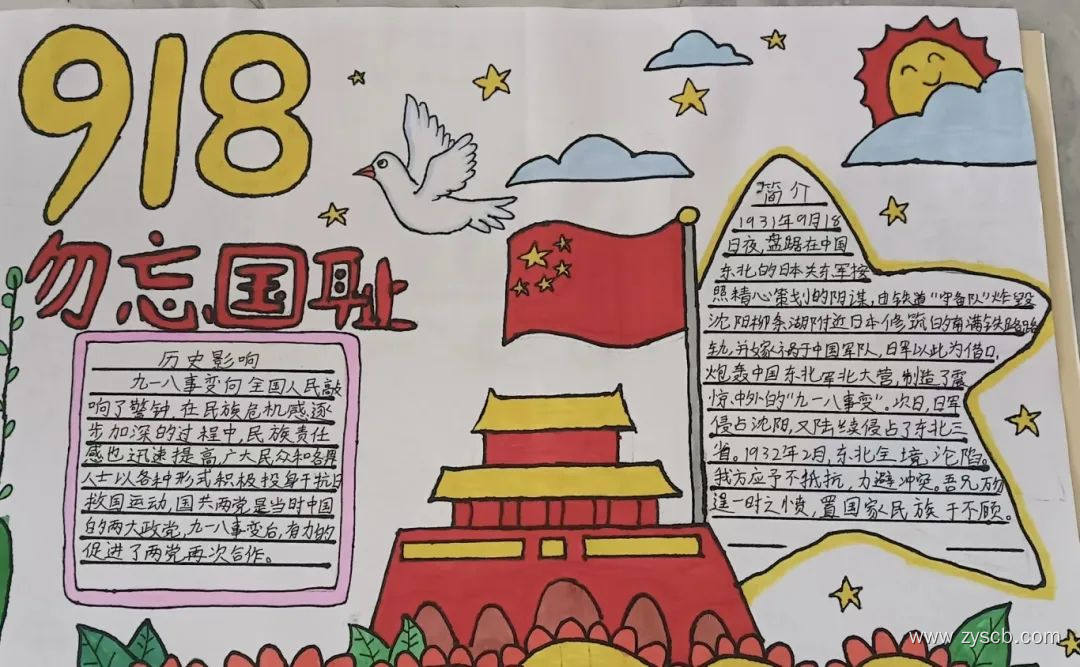 918
勿忘国耻
历史影响
九一八事变向全国人民敲
响了警钟,在民族危机感逐
步加深的过程中,民族责任
感也迅速提高,广大民众和各界
人士以各种形式积极投身于抗日
救国运动,国共两党是当时中国
的两大政党,九一八事变后,有力的
促进了两党再次合作。
简介
1931年9月18
日夜,盘踞在中国
东北的日本关东军按
照精心策划的阴谋,由铁道"守备队"炸毁
沈阳柳条湖附近日本修筑的南满铁路路
轨,并嫁祸于中国军队,日军以此为借口,
炮轰中国东北军北大营,制造了震
惊中外的"九一八事变"。次日,日军
侵占沈阳,又陆续侵占了东北三
省。1932年2月,东北全境沦陷。
我方应予不抵抗,力避冲突。吾兄万勿
逞一时之愤,置国家民族于不顾。
www.zyscb.com